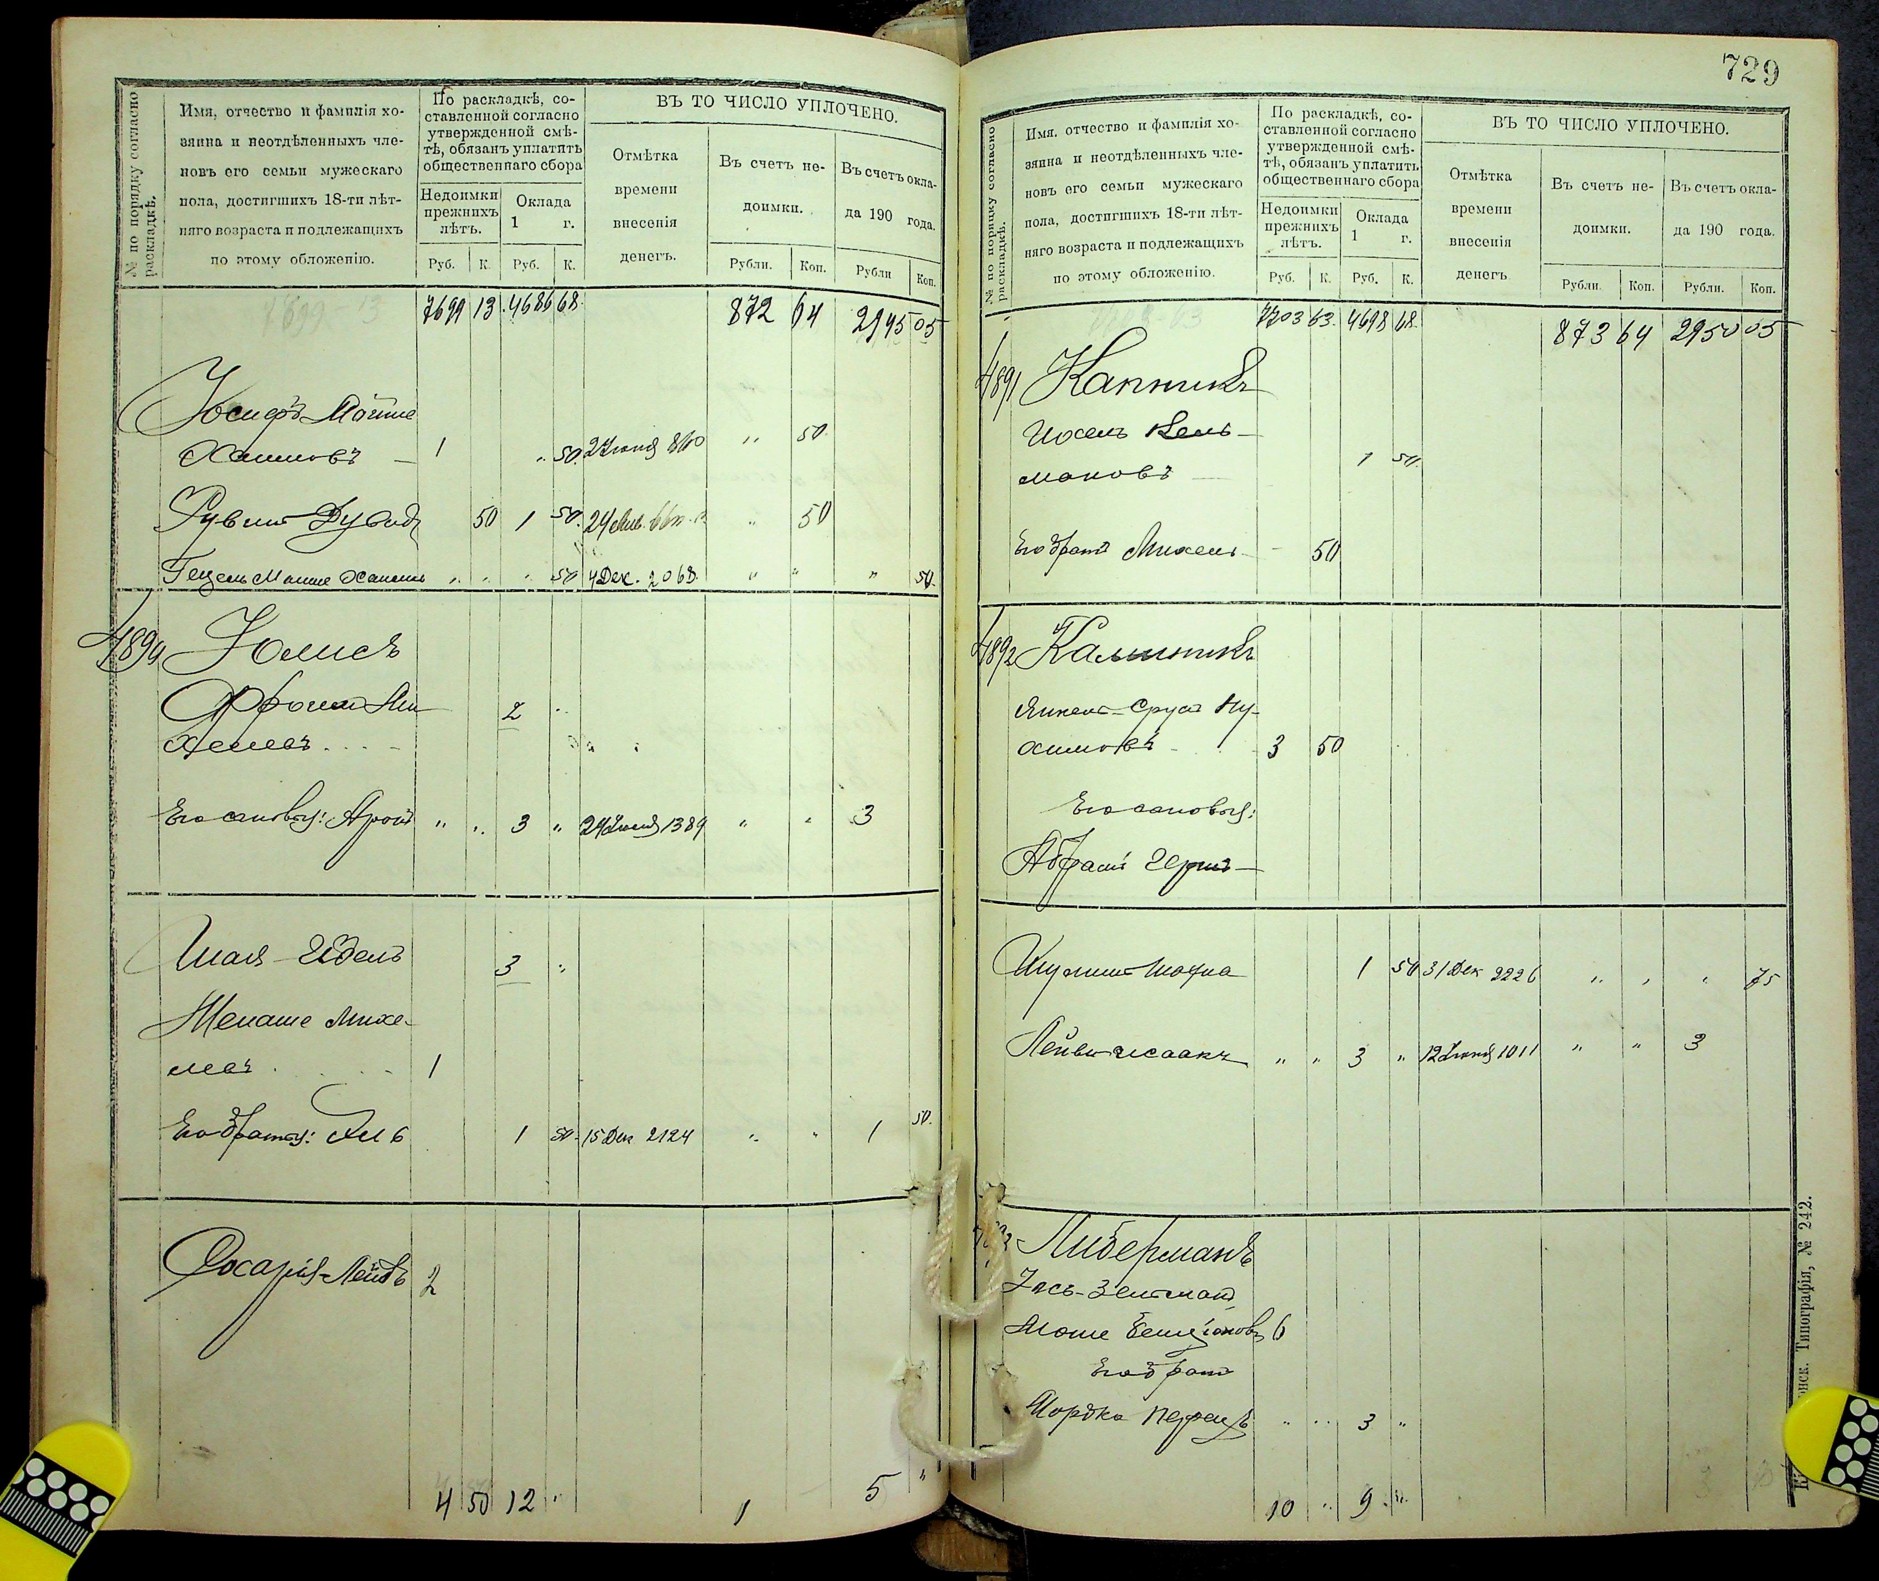 № по порядку согласно раскладкѣ.
Имя, отчество и фамилія хо-
зяина и неотдѣленныхъ чле-
новъ его семьи мужескаго
пола, достигшихъ 18-ти лѣт-
няго возраста и подлежащихъ
по этому обложенію.
По раскладкѣ, со-
ставленной согласно
утвержденной смѣ-
тѣ, обязанъ уплатить
общественнаго сбора
Недоимки
прежнихъ
лѣтъ.
Оклада
1 г.
Руб. К. Руб. К.
ВЪ ТО ЧИСЛО УПЛОЧЕНО.
Отмѣтка
времени
внесенія
денегъ.
Въ счетъ не-
доимки.
Въ счетъ окла-
да 190 года.
Рубли. Коп. Рубли Коп.
7699 13 4686 68 872 64 2945 05
Іосифъ Мойше
Хаимовъ 1 " 50 2 Іюня 860 " 50
Рувинъ Дувидъ 50 1 50 " 50
Гецель Мойше Хаимовъ " " " 50 4 Дек. 2068 " " " 50
4890 Юлисъ
Афроим Ми-
хелевъ 2 "
Его сыновья: Аронъ " " 3 " 24 Іюня 1389 " " 3
Шая-Idель 3 "
Менаше Михе-
левъ 1
Его братья: 1 50 15 Дек 2124 " " 1 50
Лейбъ 2
4 50 12 " 1 5 "
729
№ по порядку согласно раскладкѣ.
Имя, отчество и фамилія хо-
зяина и неотдѣленныхъ чле-
новъ его семьи мужескаго
пола, достигшихъ 18-ти лѣт-
няго возраста и подлежащихъ
по этому обложенію.
По раскладкѣ, со-
ставленной согласно
утвержденной смѣ-
тѣ, обязанъ уплатить
общественнаго сбора
Недоимки
прежнихъ
лѣтъ.
Оклада
1 г.
Руб. К. Руб. К.
ВЪ ТО ЧИСЛО УПЛОЧЕНО.
Отмѣтка
времени
внесенія
денегъ
Въ счетъ не-
доимки.
Въ счетъ окла-
да 190 года.
Рубли. Коп. Рубли. Коп.
7703 63 4698 68 873 64 2950 05
4891 Капникъ
Иосель Кель-
мановъ 1 50
Его братъ Михель 50
4892 Калитникъ
Янкель-Сруль Ну-
химовъ 3 50
Его сыновья:
Абрамъ Герш-
1 50 31 Дек 2226 " " " 75
Лейви Исаакъ " " 3 " 12 Іюня 1011 " " 3
Либерманъ
Мойше 6
Его братъ
Мордко Перецъ " " 3 "
10 " 9 "
Типографія, № 242.